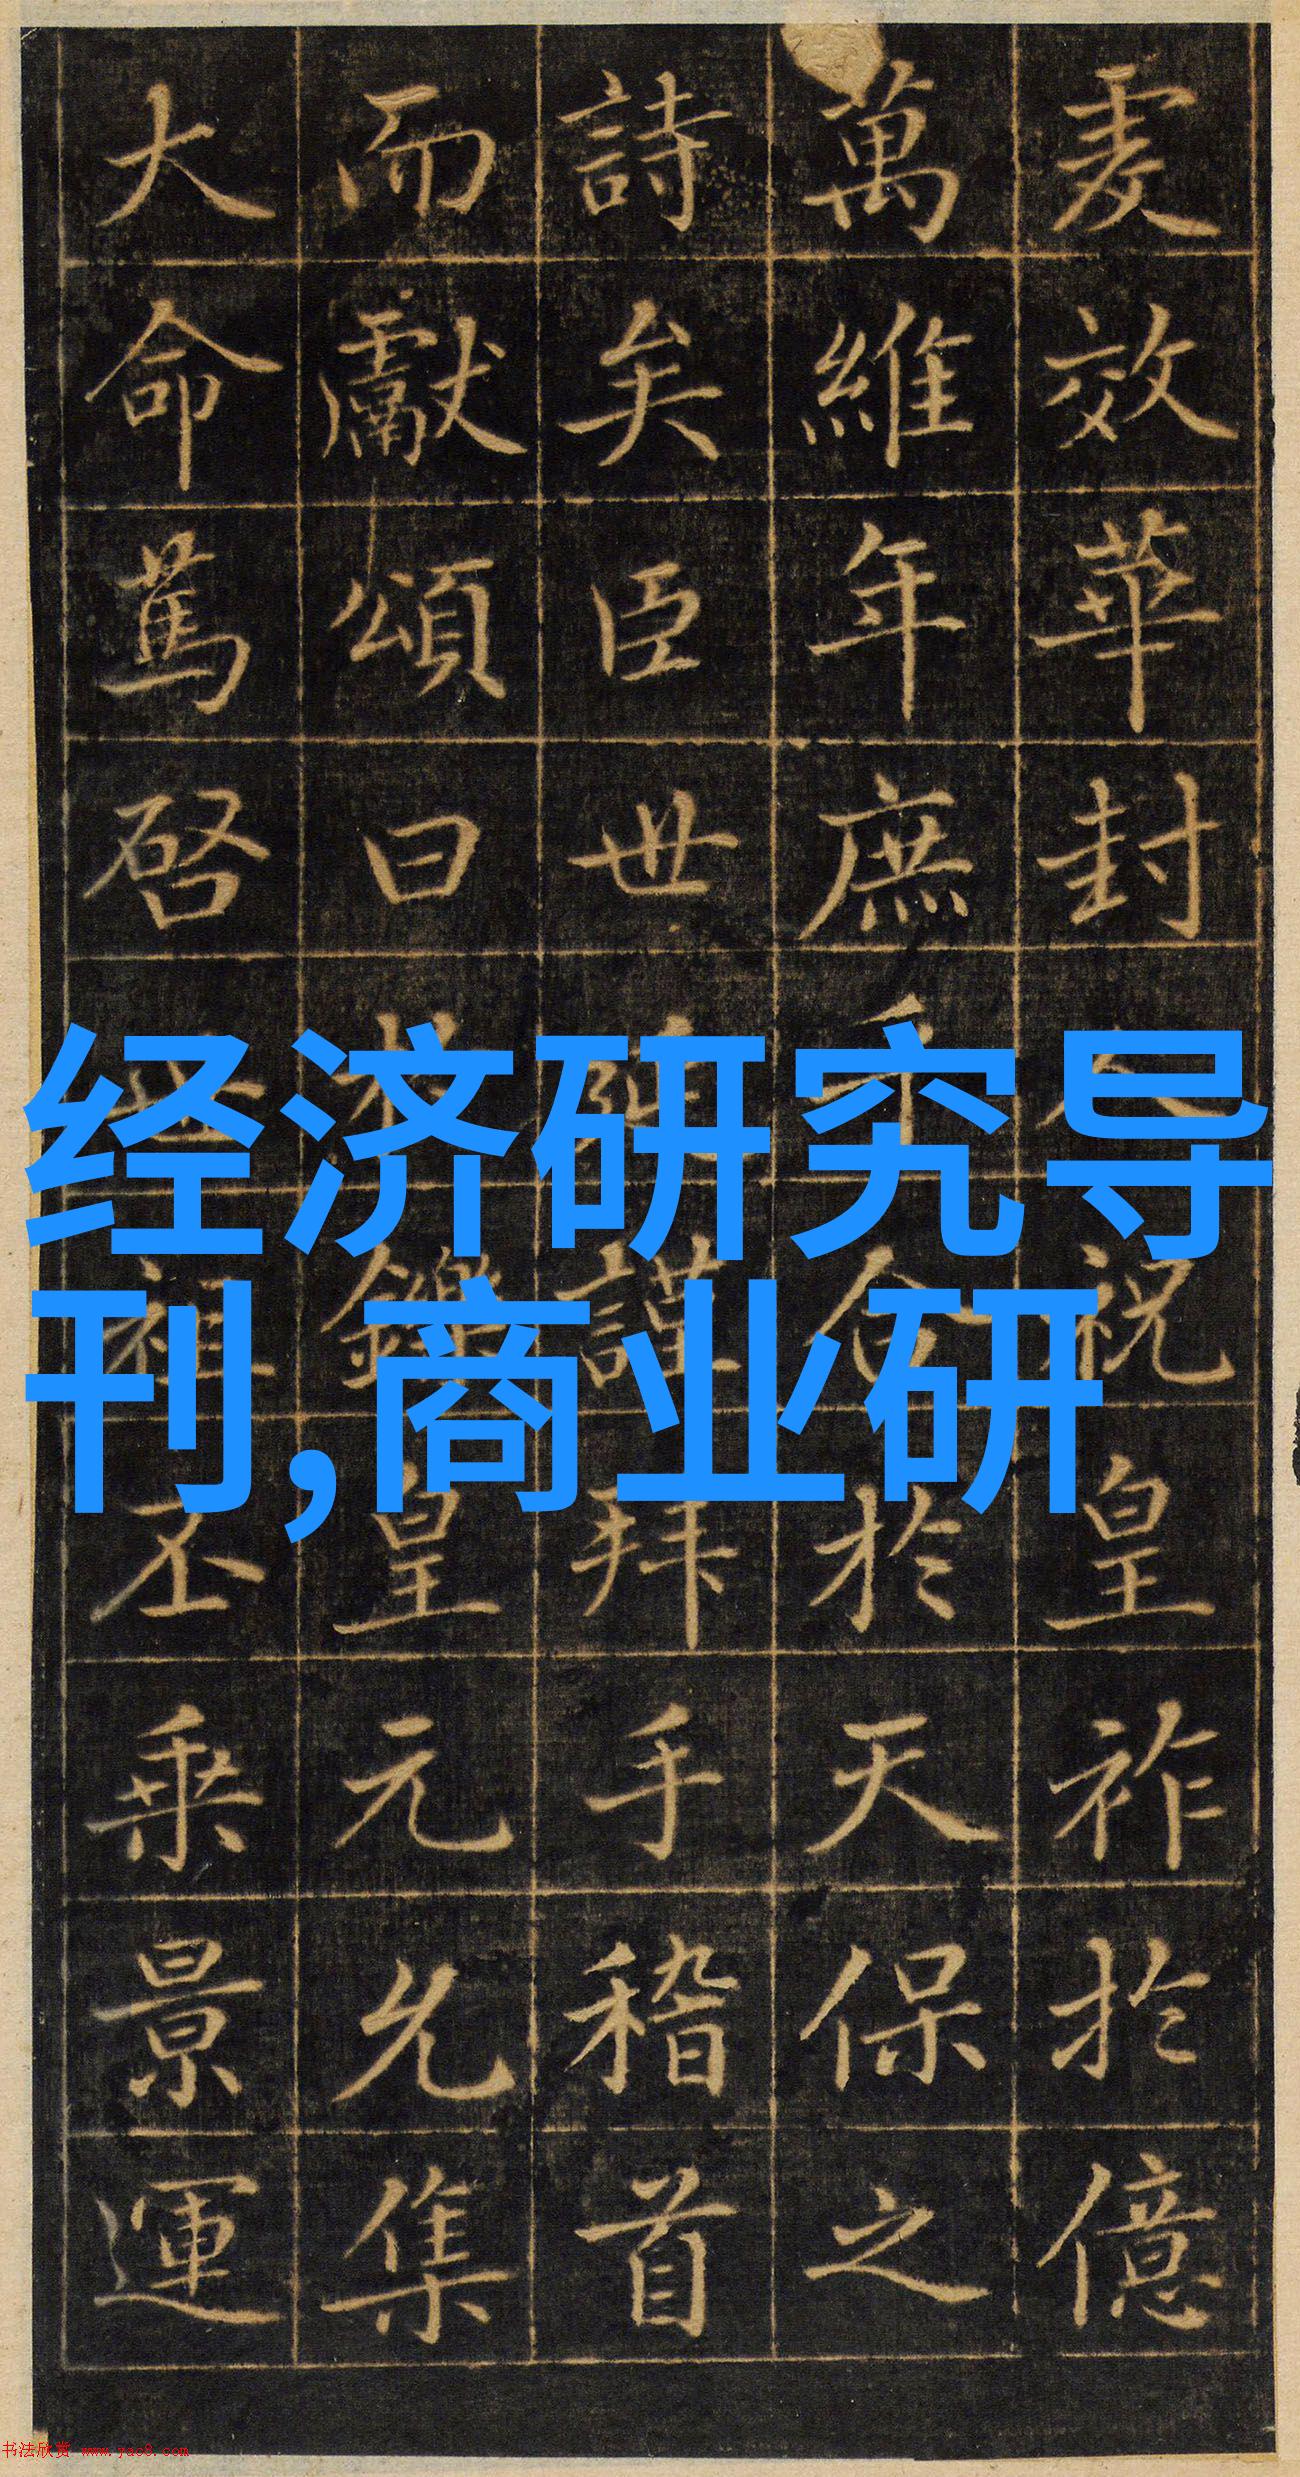 爰效華封祝皇祚於億
萬維年庶合於天保之
詩矣臣世謹拜手稽首
而獻頌曰鑠皇元允集
大命篤啓祖丕乘景運
经济研究导
刊,商业研
书法欣赏 www.yac8.com